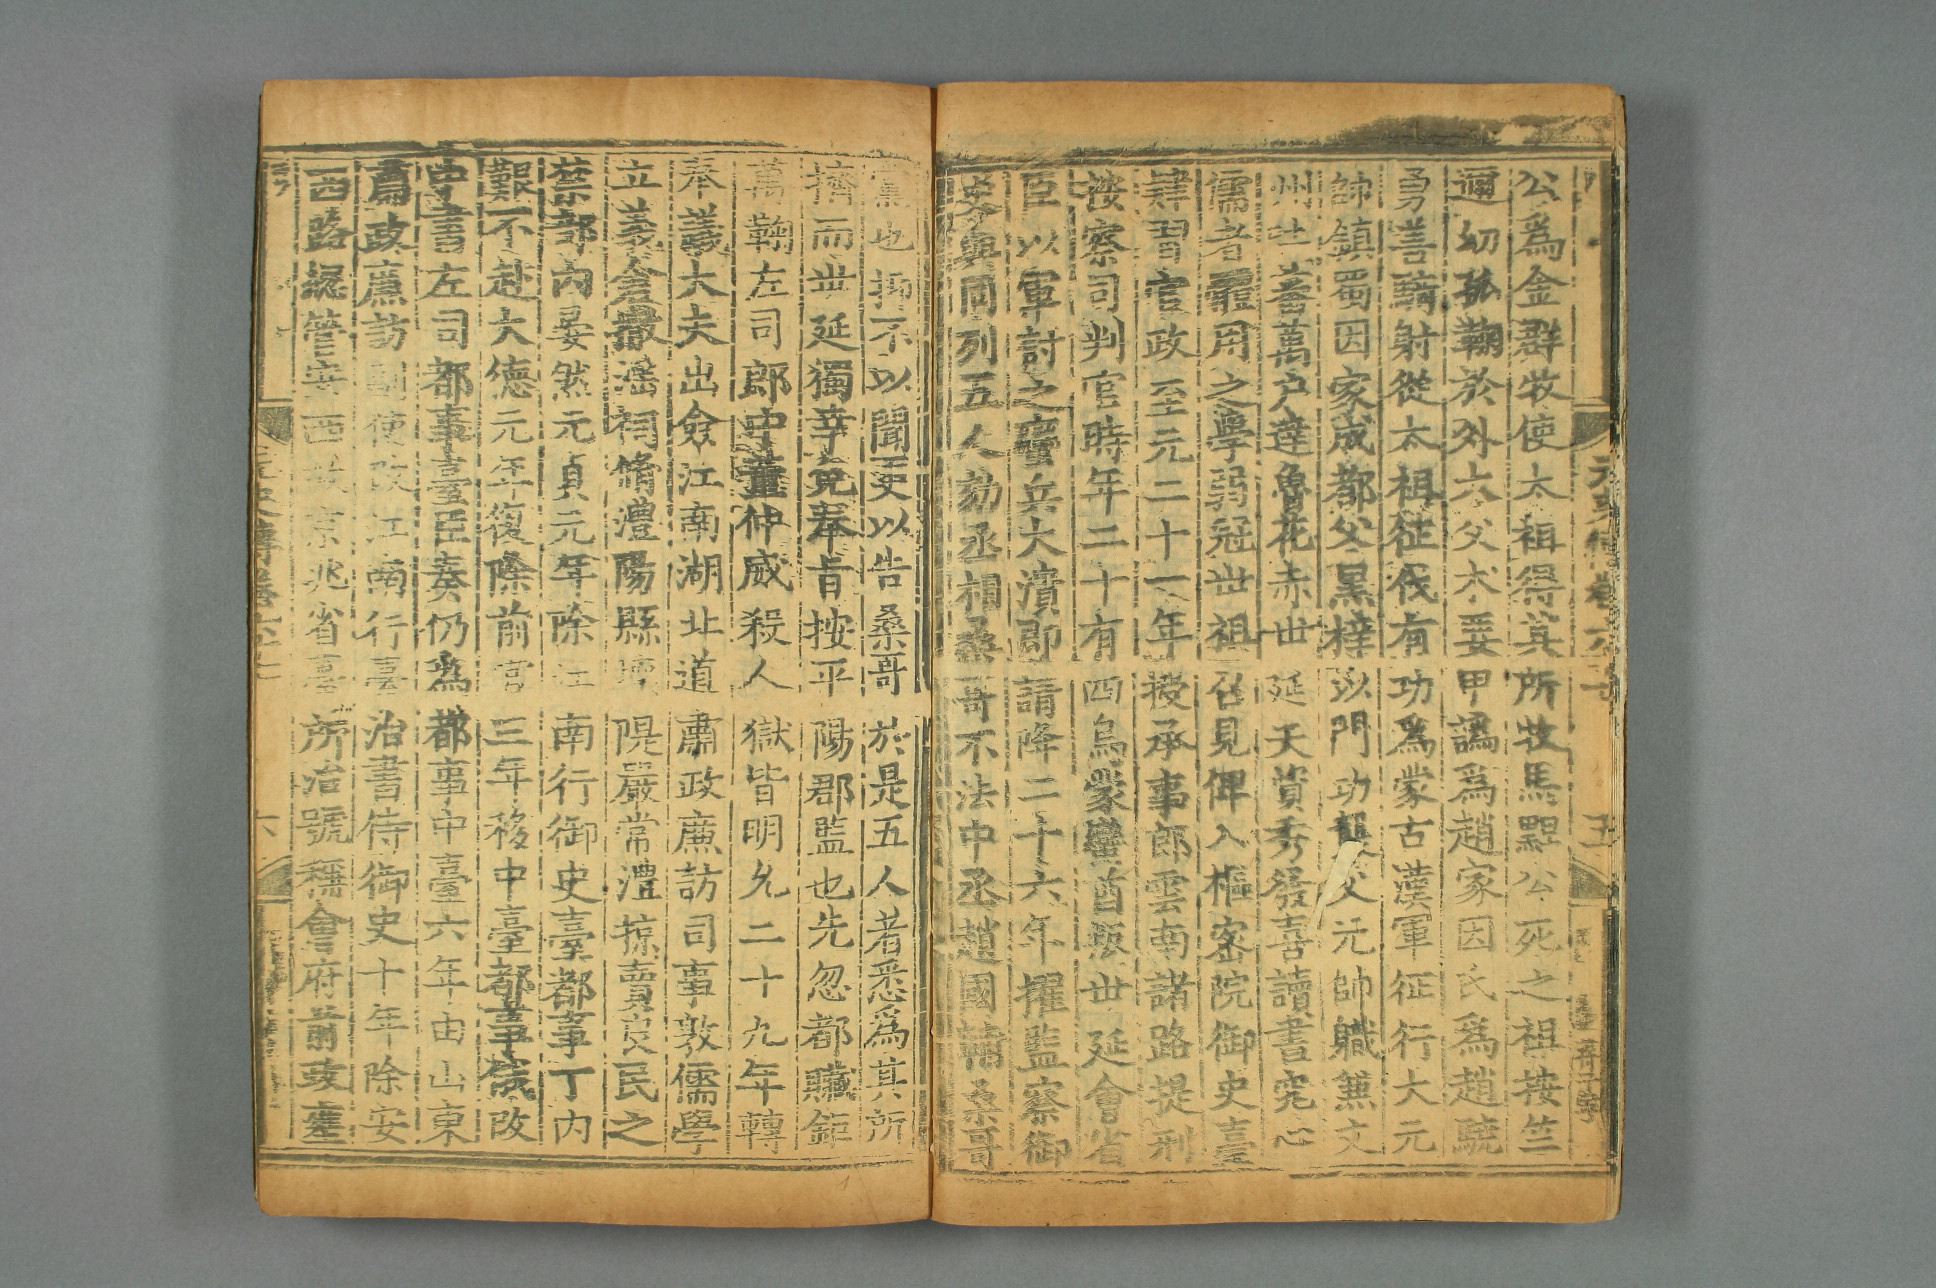 公爲金群牧使太祖得其所牧馬默公死之祖按竺
邇幼孤鞠於外大父术要甲譌爲趙家因氏爲趙驍
勇善騎射從太祖征伐有功爲蒙古漢軍征行大元
帥鎮蜀因家成都父黑梓以門功襲父元帥職兼文
州吐蕃萬户達魯花赤世延天資秀發喜讀書究心
儒者體用之學弱冠世祖召見俾入樞密院御史臺
肄習官政至元二十一年授承事郎雲南諸路提刑
按察司判官時年二十有四烏蒙蠻酋叛世延會省
臣以軍討之蠻兵大潰即請降二十六年擢監察御
史與同列五人劾丞相桑哥不法中丞趙國輔桑哥
黨也抑不以聞更以告桑哥於是五人者悉爲其所
擠而世延獨幸免奉旨按平陽郡監也先忽都贓鉅
萬鞫左司郎中董仲威殺人獄皆明允二十九年轉
奉議大夫出僉江南湖北道肅政廉訪司事敦儒學
立義倉撤淫祠脩澧陽縣壞隄嚴常澧掠賣良民之
禁部内晏然元貞元年除江南行御史臺都事丁内
艱不赴大德元年復除前官三年移中臺都事俄改
中書左司都事臺臣奏仍爲都事中臺六年由山東
肅政廉訪副使改江南行臺治書侍御史十年除安
西路總管安西故京兆省臺所治號稱會府前政壅